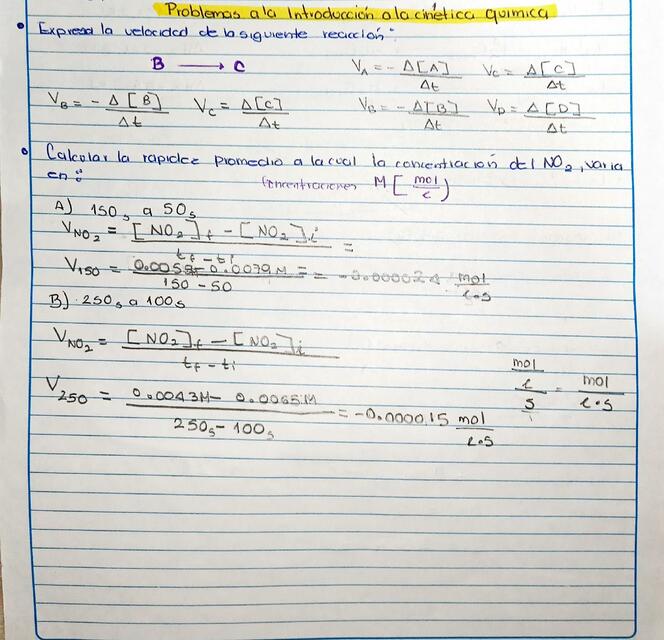 Problemas a la Introducción a la cinética química
• Expresa la velocidad de la siguiente reacción:
B ⟶ C
V_A = - Δ[A]/Δt V_C = Δ[C]/Δt
V_B = - Δ[B]/Δt V_C = Δ[C]/Δt V_B = - Δ[B]/Δt V_D = Δ[D]/Δt
• Calcular la rapidez promedio a la cual la concentración del NO₂, varia
en:
Concentraciones M[mol/l)
A) 150s a 50s
V_NO₂ = [NO₂]f - [NO₂]i / tf - ti =
V150 = - 0.0039M = = mol/l·s
150 - 50
B) 250s a 100s
V_NO₂ = [NO₂]f - [NO₂]i / tf - ti
mol/l / s = mol/l·s
V250 = 0.0043M - 0.0065M / 250s - 100s = -0.000015 mol/l·s